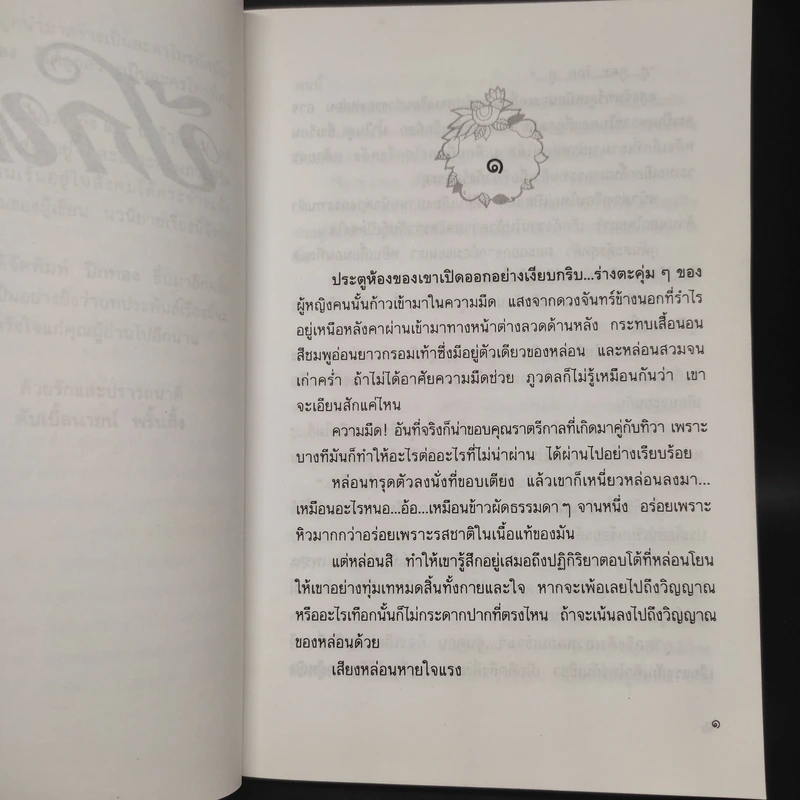 ๑
ประตูห้องของเขาเปิดออกอย่างเงียบกริบ...ร่างตะคุ่ม ๆ ของ
ผู้หญิงคนนั้นก้าวเข้ามาในความมืด แสงจากดวงจันทร์ข้างนอกที่รำไร
อยู่เหนือหลังคาผ่านเข้ามาทางหน้าต่างลวดด้านหลัง กระทบเสื้อนอน
สีชมพูอ่อนยาวกรอมเท้าซึ่งมีอยู่ตัวเดียวของหล่อน และหล่อนสวมจน
เก่าคร่ำ ถ้าไม่ได้อาศัยความมืดช่วย ภูวดลก็ไม่รู้เหมือนกันว่า เขา
จะเอียนสักแค่ไหน
ความมืด! อันที่จริงก็น่าขอบคุณราตรีกาลที่เกิดมาคู่กับทิวา เพราะ
บางทีมันก็ทำให้อะไรต่ออะไรที่ไม่น่าผ่าน ได้ผ่านไปอย่างเรียบร้อย
หล่อนทรุดตัวลงนั่งที่ขอบเตียง แล้วเขาก็เหนี่ยวหล่อนลงมา...
เหมือนอะไรหนอ...อ้อ...เหมือนข้าวผัดธรรมดาๆ จานหนึ่ง อร่อยเพราะ
หิวมากกว่าอร่อยเพราะรสชาติในเนื้อแท้ของมัน
แต่หล่อนสิ ทำให้เขารู้สึกอยู่เสมอถึงปฏิกิริยาตอบโต้ที่หล่อนโยน
ให้เขาอย่างทุ่มเทหมดสิ้นทั้งกายและใจ หากจะเพ้อเลยไปถึงวิญญาณ
หรืออะไรเทือกนั้นก็ไม่กระดากปากที่ตรงไหน ถ้าจะเน้นลงไปถึงวิญญาณ
ของหล่อนด้วย
เสียงหล่อนหายใจแรง
๑